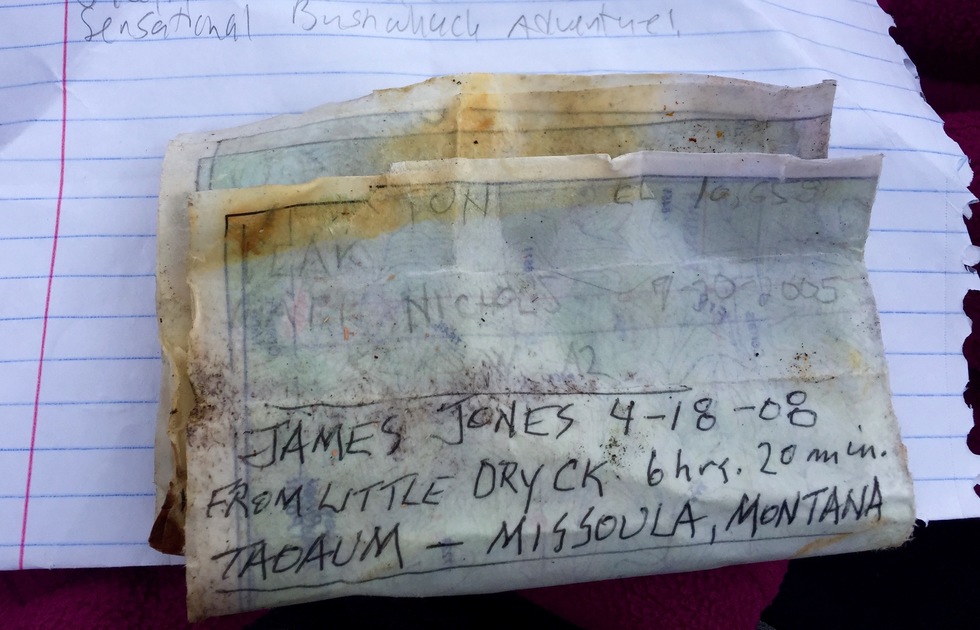 Sensational Bushwhack Adventure!
EL 10,650
NICHOLS 9-20-2005
JAMES JONES 4-18-08
FROM LITTLE DRY CK. 6 hrs. 20 min.
TAOAUM — MISSOULA, MONTANA